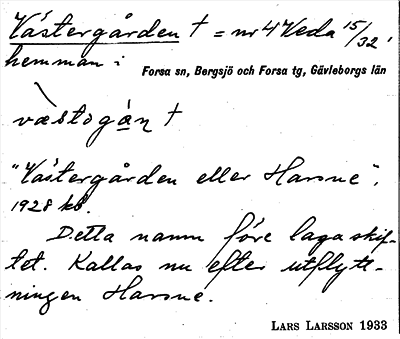 Västergården † = nr 4 Veda 15/32,
hemman i
Forsa sn, Bergsjö och Forsa tg, Gävleborgs län
væstogán †
"Västergården eller Harsne",
1928 kb.
Detta namn före laga skif-
tet. Kallas nu efter utflytt-
ningen Harsne.
LARS LARSSON 1933